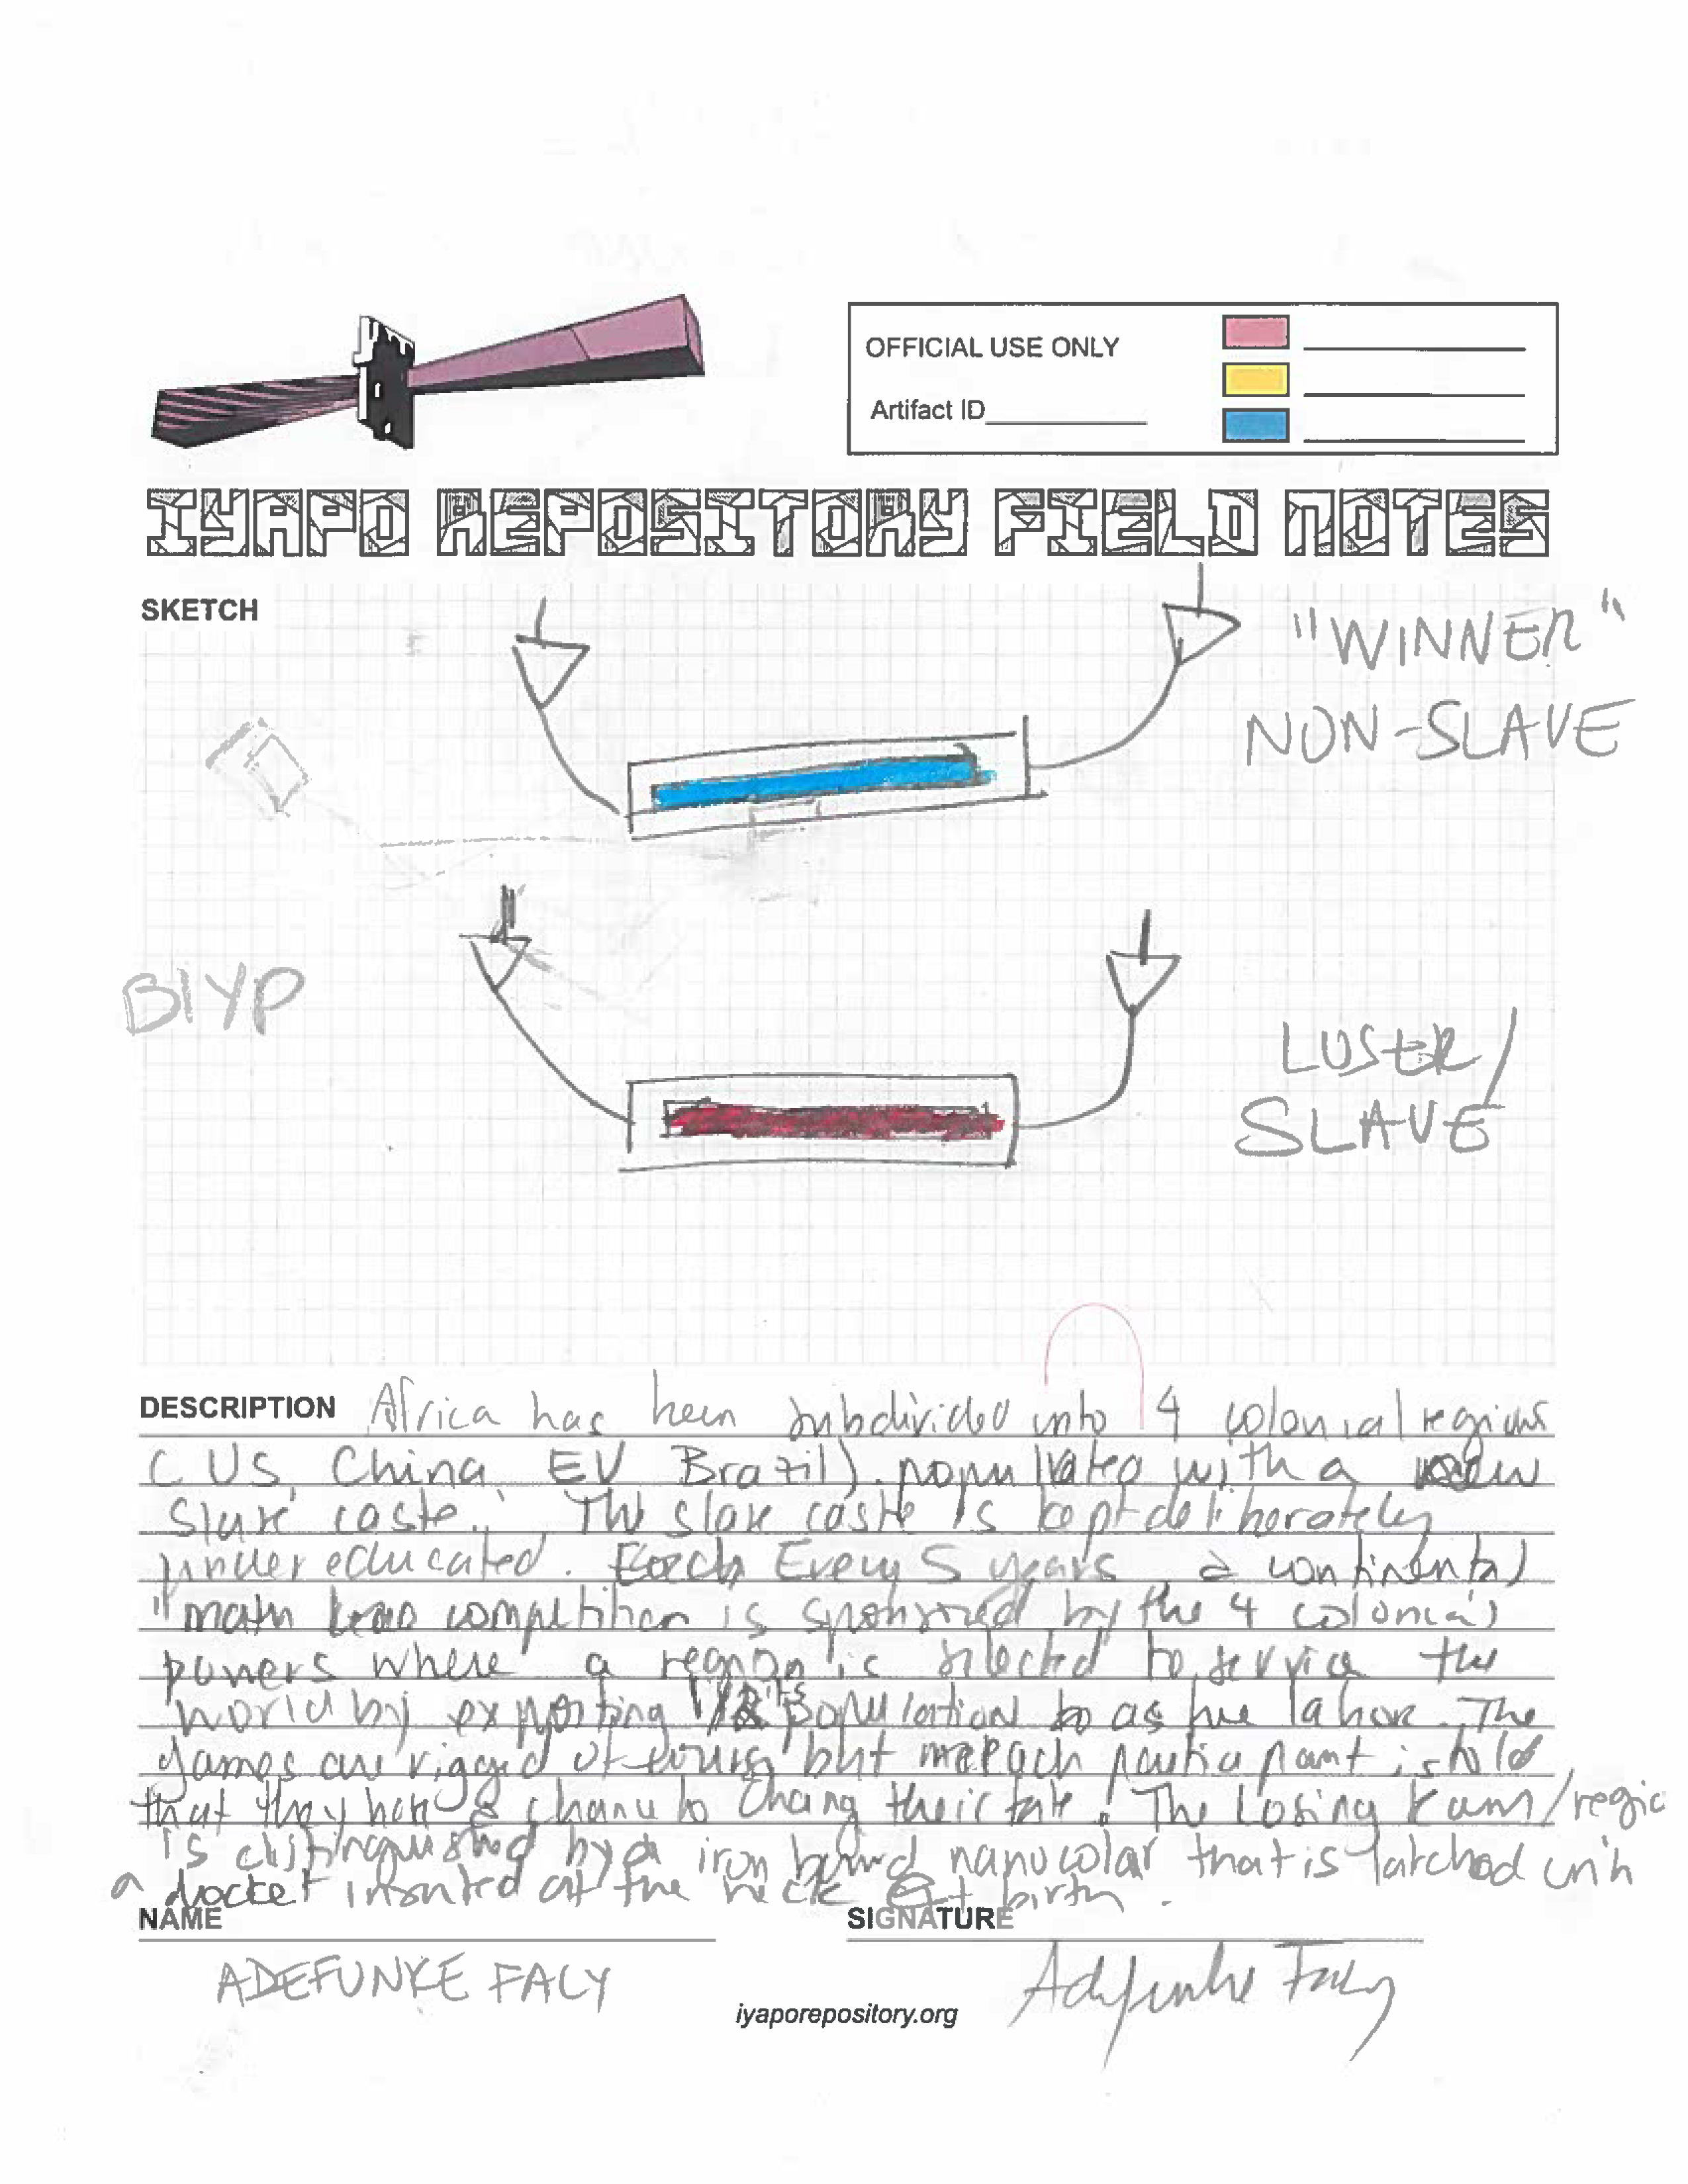 OFFICIAL USE ONLY
Artifact ID
IYAPO REPOSITORY FIELD NOTES
SKETCH
"WINNER"
NON-SLAVE
BIYP
LOSER/
SLAVE
DESCRIPTION Africa has been subdivided into 4 colonial regions
(US, China, EU Brazil). populated with a new
slave caste. The slave caste is kept deliberately
under educated. Every 5 years, a continental
"math competition is sponsored by the 4 colonial
powers where a region is selected to service the
world by exporting 1/2 its population as free labor. The
games are rigged of course but each participant is told
that they have a chance to change their fate! The Losing team/regio
is distinguished by a iron band nanocolar that is latched with
a docket inserted at the neck at birth.
NAME
SIGNATURE
ADEFUNKE FALY
Adefunke Faly
iyaporepository.org